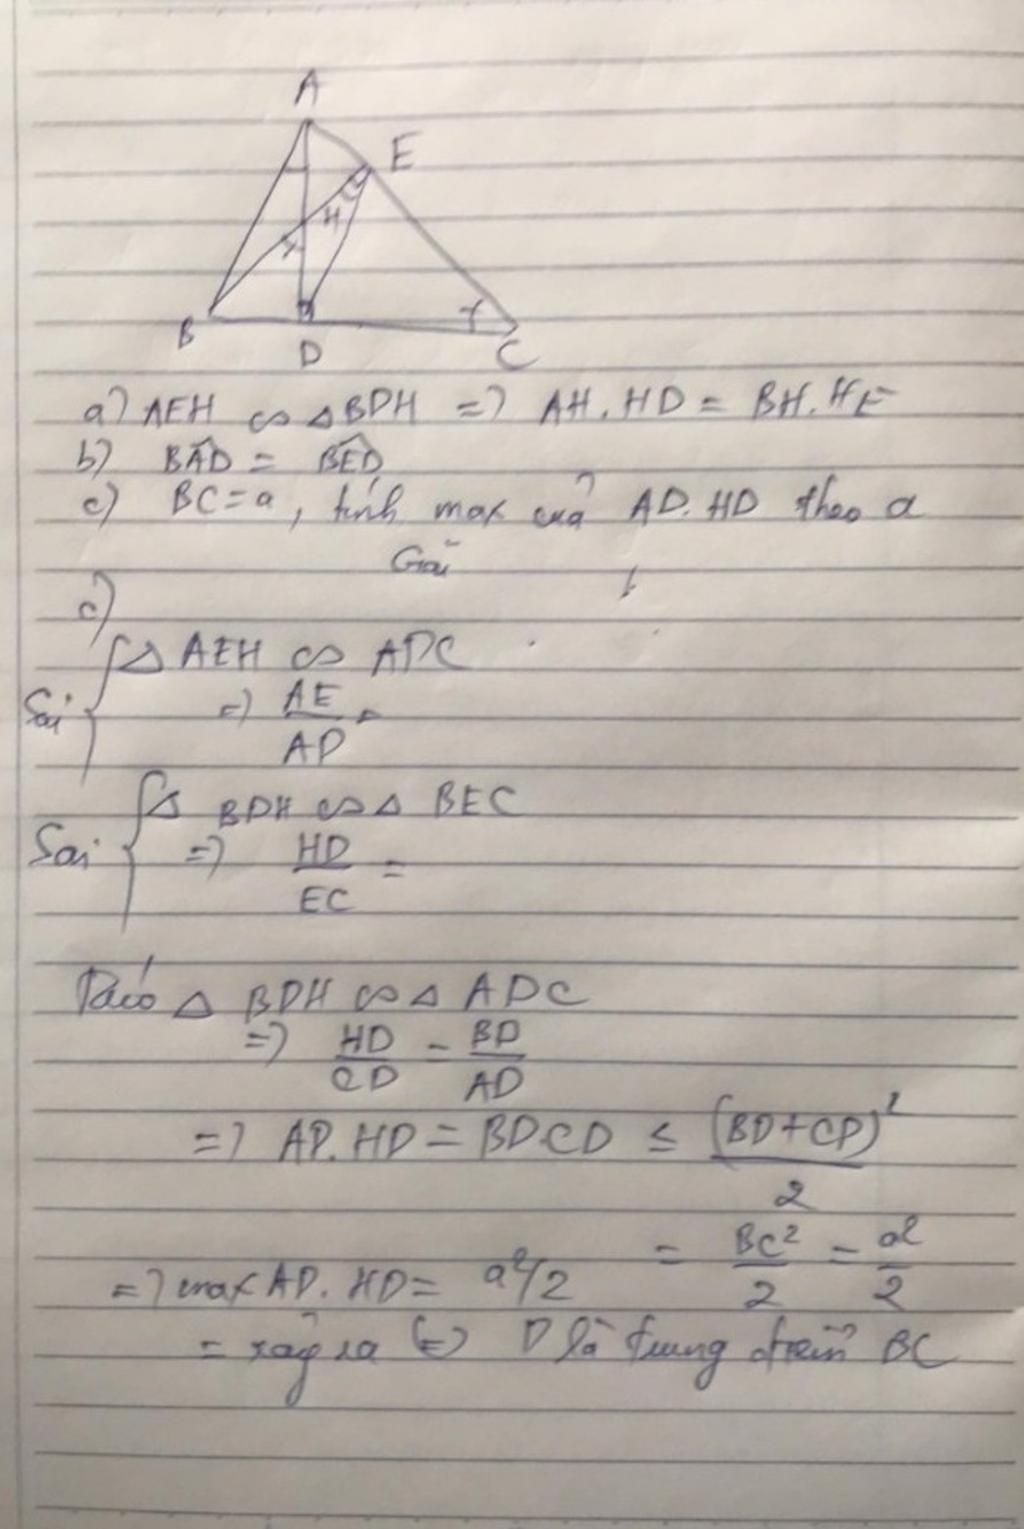 A
E
H
B
D
C
a) AEH ∽ △BDH => AH.HD = BH.HE
b) BÂD = BÊD
c) BC=a, tính max của AD.HD theo a
Giải
c)
△ AEH ∽ ADC
Sai
=> AE/AD =
△ BDH ∽ △ BEC
Sai => HD/EC =
Ta có △ BDH ∽ △ ADC
=> HD/CD = BD/AD
=> AD.HD = BD.CD ≤ (BD+CD)²/2
= BC²/2 = a²/2
=> max AD.HD = a²/2
= xảy ra <=> D là trung điểm BC